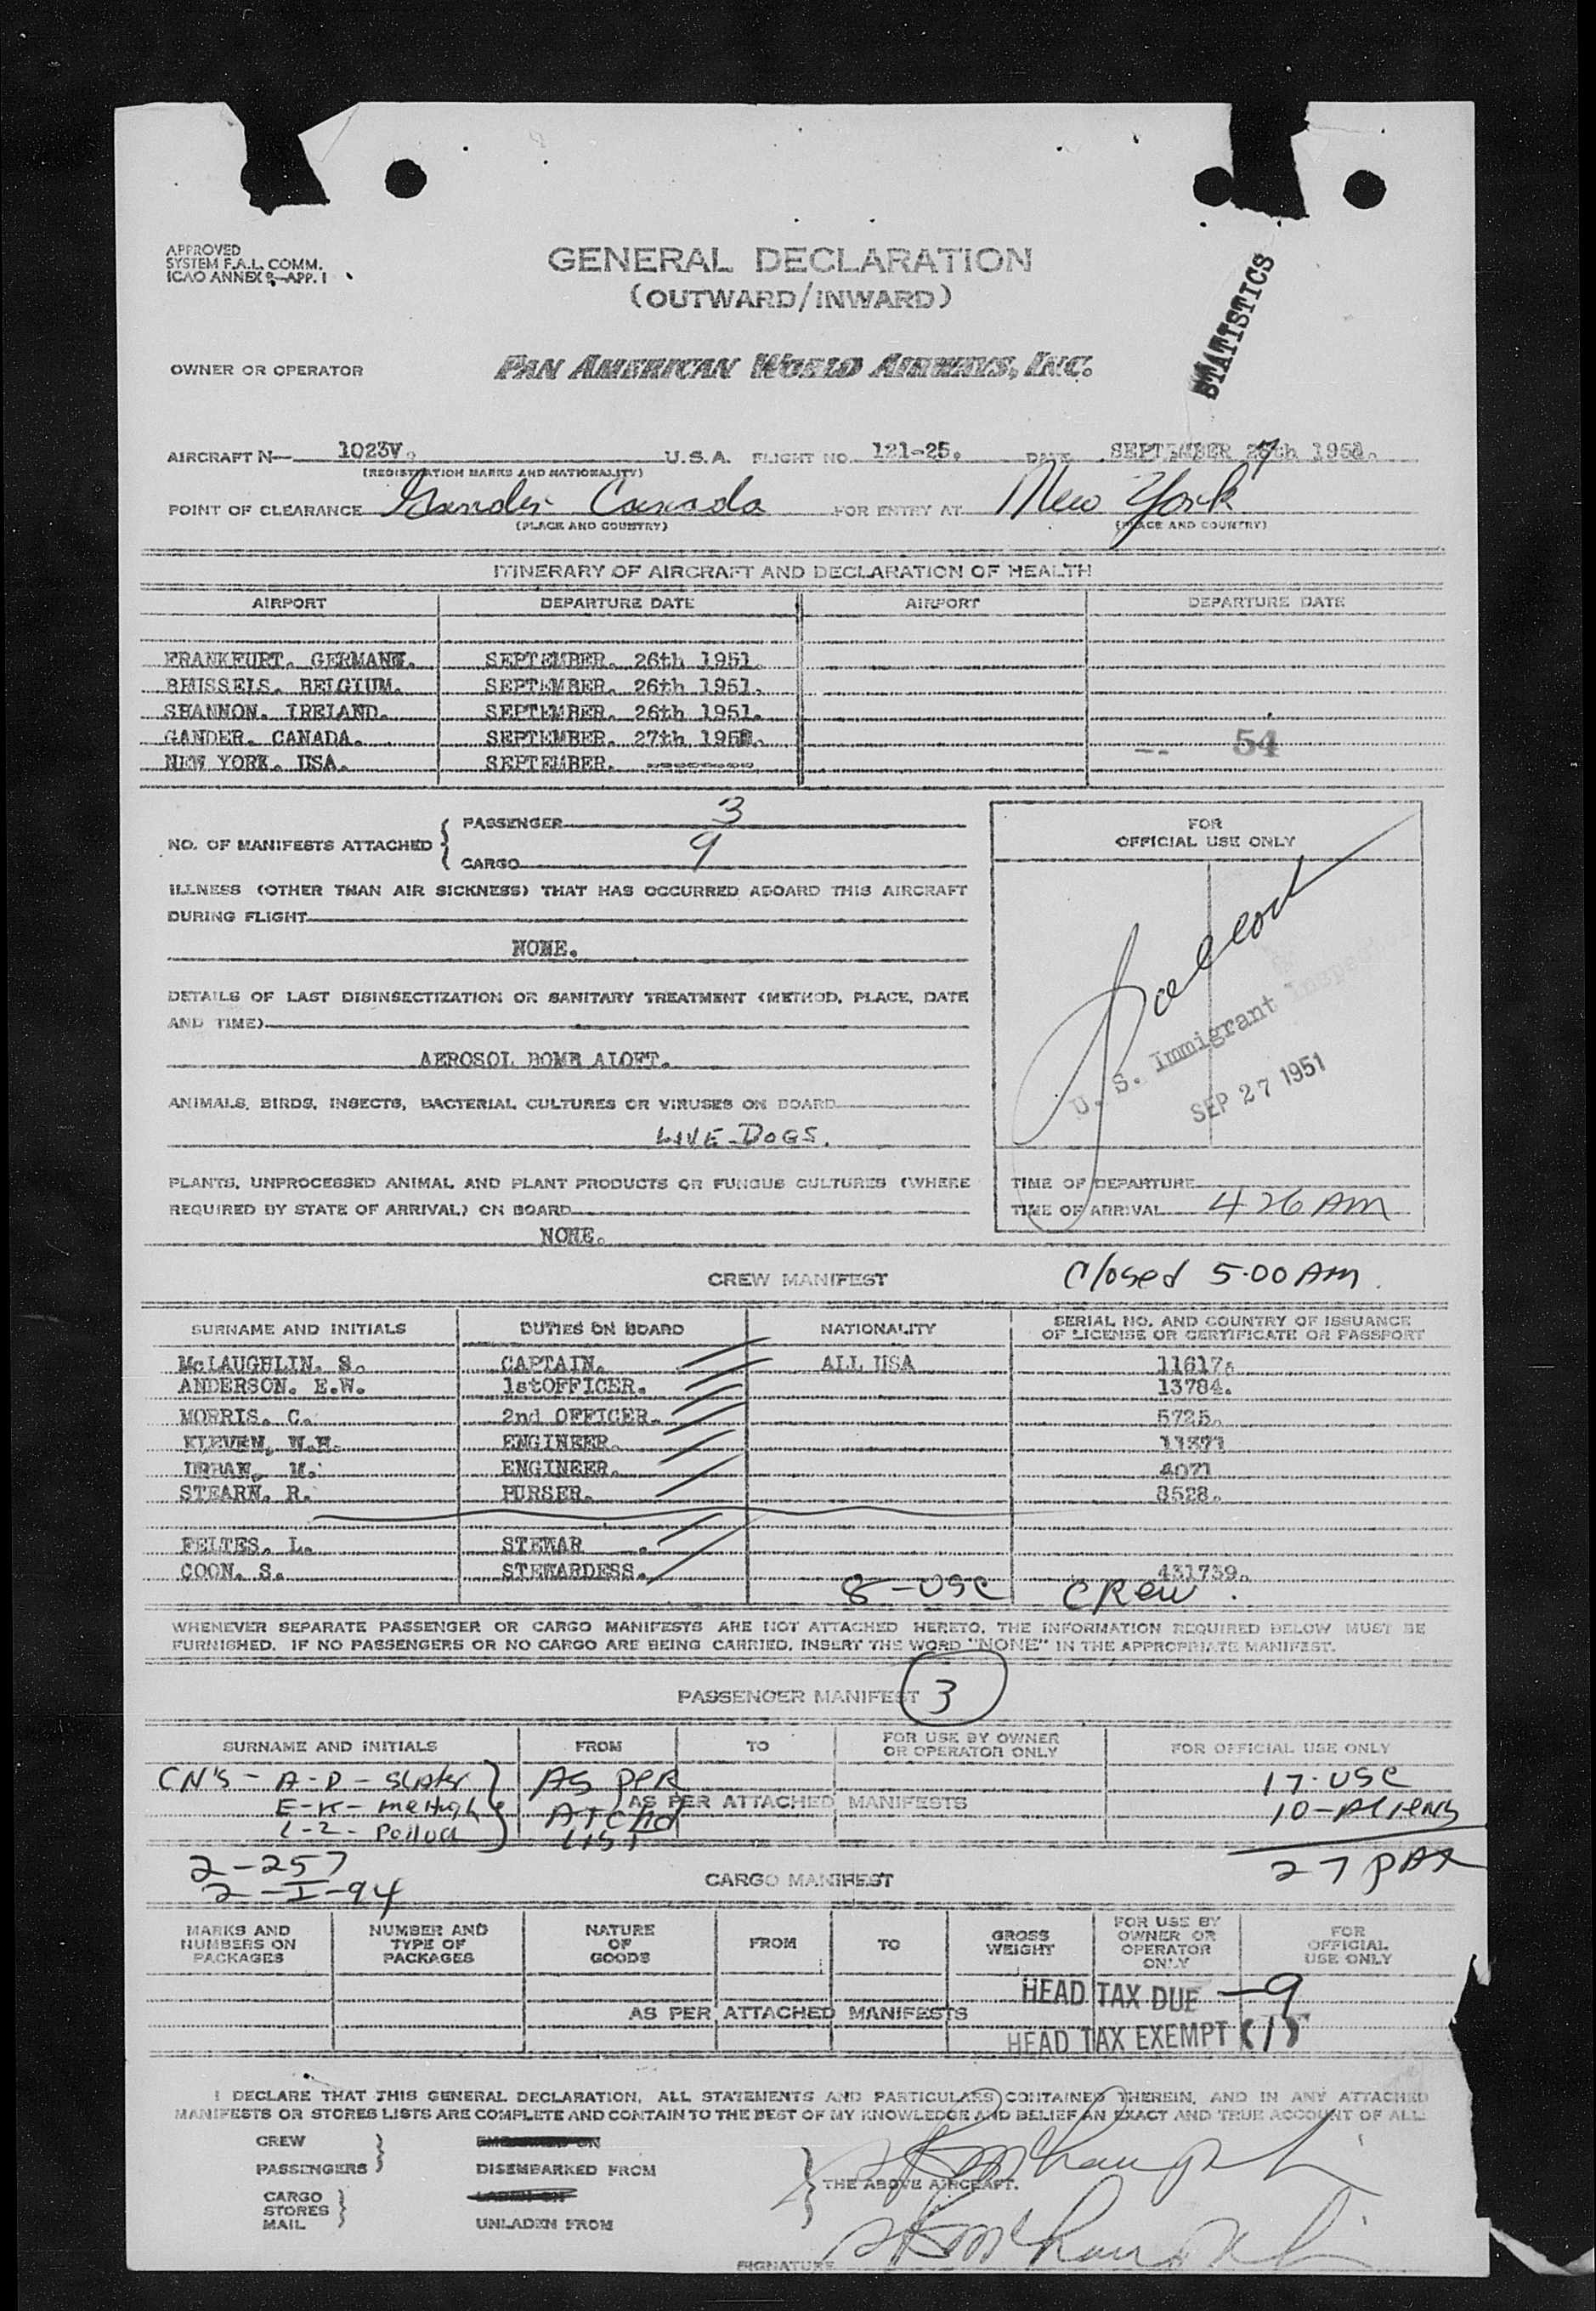 APPROVED
SYSTEM F.A.L. COMM.
ICAO ANNEX 9—APP. 1
GENERAL DECLARATION
(OUTWARD/INWARD)
STATISTICS
OWNER OR OPERATOR PAN AMERICAN WORLD AIRWAYS, INC.
AIRCRAFT N— 1023V. U.S.A. FLIGHT NO. 121-25. DATE SEPTEMBER 27th 1951.
(REGISTRATION MARKS AND NATIONALITY)
POINT OF CLEARANCE Gander Canada FOR ENTRY AT New York
(PLACE AND COUNTRY) (PLACE AND COUNTRY)
ITINERARY OF AIRCRAFT AND DECLARATION OF HEALTH
AIRPORT DEPARTURE DATE AIRPORT DEPARTURE DATE
FRANKFURT. GERMANY. SEPTEMBER. 26th 1951.
BRUSSELS. BELGIUM. SEPTEMBER. 26th 1951.
SHANNON. IRELAND. SEPTEMBER. 26th 1951.
GANDER. CANADA. SEPTEMBER. 27th 1951. 54
NEW YORK. USA. SEPTEMBER. ---------
NO. OF MANIFESTS ATTACHED { PASSENGER 3
CARGO 9
FOR
OFFICIAL USE ONLY
ILLNESS (OTHER THAN AIR SICKNESS) THAT HAS OCCURRED ABOARD THIS AIRCRAFT
DURING FLIGHT
NONE.
DETAILS OF LAST DISINSECTIZATION OR SANITARY TREATMENT (METHOD, PLACE, DATE
AND TIME)
AEROSOL BOMB ALOFT.
U. S. Immigrant Inspector
SEP 27 1951
ANIMALS, BIRDS, INSECTS, BACTERIAL CULTURES OR VIRUSES ON BOARD
LIVE DOGS.
PLANTS, UNPROCESSED ANIMAL AND PLANT PRODUCTS OR FUNGUS CULTURES (WHERE
REQUIRED BY STATE OF ARRIVAL) ON BOARD
NONE.
TIME OF DEPARTURE
TIME OF ARRIVAL 4 26 AM
CREW MANIFEST Closed 5·00 AM.
SURNAME AND INITIALS DUTIES ON BOARD NATIONALITY SERIAL NO. AND COUNTRY OF ISSUANCE
OF LICENSE OR CERTIFICATE OR PASSPORT
McLAUGHLIN. S. CAPTAIN. ALL USA 11617.
ANDERSON. E.W. 1stOFFICER. 13784.
MORRIS. C. 2nd OFFICER. 5725.
KLEVEN, W.H. ENGINEER. 11371
URBAN, M. ENGINEER. 4071
STEARN. R. PURSER. 8528.
FELTES. L. STEWAR .
COON. S. STEWARDESS. 431739.
8-USC CREW.
WHENEVER SEPARATE PASSENGER OR CARGO MANIFESTS ARE NOT ATTACHED HERETO, THE INFORMATION REQUIRED BELOW MUST BE
FURNISHED. IF NO PASSENGERS OR NO CARGO ARE BEING CARRIED, INSERT THE WORD "NONE" IN THE APPROPRIATE MANIFEST.
PASSENGER MANIFEST 3
SURNAME AND INITIALS FROM TO FOR USE BY OWNER
OR OPERATOR ONLY FOR OFFICIAL USE ONLY
CN'S - A-D - Slater AS PER 17·USC
E-K - AS PER ATTACHED MANIFESTS 10-ALIENS
ATCHD
LIST
27 PAX
2-257
2-I-94
CARGO MANIFEST
MARKS AND
NUMBERS ON
PACKAGES
NUMBER AND
TYPE OF
PACKAGES
NATURE
OF
GOODS
FROM
TO
GROSS
WEIGHT
FOR USE BY
OWNER OR
OPERATOR
ONLY
FOR
OFFICIAL
USE ONLY
HEAD TAX DUE -9
AS PER ATTACHED MANIFESTS
HEAD TAX EXEMPT (1)
I DECLARE THAT THIS GENERAL DECLARATION, ALL STATEMENTS AND PARTICULARS CONTAINED THEREIN, AND IN ANY ATTACHED
MANIFESTS OR STORES LISTS ARE COMPLETE AND CONTAIN TO THE BEST OF MY KNOWLEDGE AND BELIEF AN EXACT AND TRUE ACCOUNT OF ALL:
CREW
PASSENGERS } DISEMBARKED FROM
THE ABOVE AIRCRAFT.
CARGO
STORES
MAIL } UNLADEN FROM
SIGNATURE